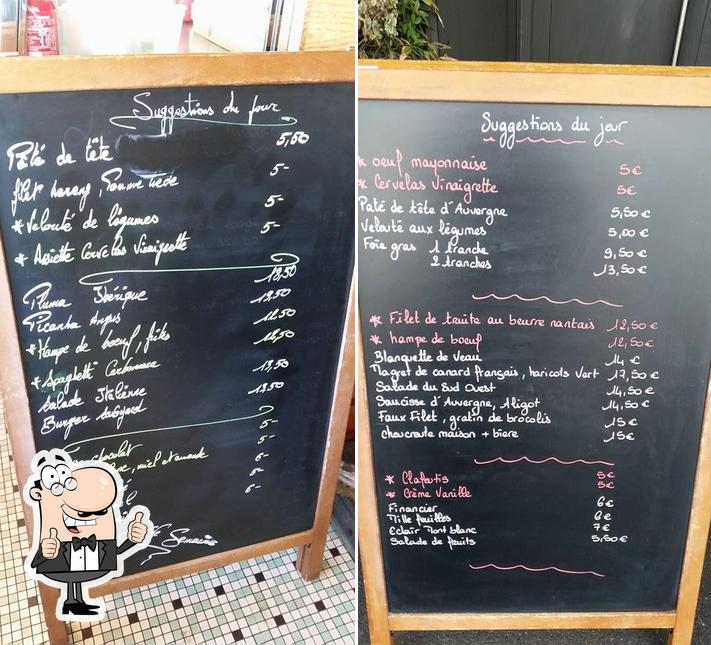 Suggestions du jour
Pâté de tête 5,50
filet hareng, Pomme tiède 5-
*Velouté de légumes 5-
*Assiette Cervelas Vinaigrette 5-
Pluma Ibérique 18,50
Picanha Angus 19,50
*Hampe de boeuf, frites 12,50
*Spaghetti Carbonara 12,50
Salade Italienne 13,50
Burger Savoyard 13,50
chocolat 5-
miel et amande 5-
5-
6-
Semaine
Suggestions du jour
* oeuf mayonnaise 5€
* Cervelas Vinaigrette 5€
Paté de tête d'Auvergne 5,50€
Velouté aux légumes 5,00€
Foie gras 1 tranche 9,50€
2 tranches 13,50€
* Filet de truite au beurre nantais 12,50€
* hampe de boeuf 12,50€
Blanquette de Veau 14€
Magret de canard français, haricots Vert 17,50€
Salade du Sud Ouest 14,50€
Saucisse d'Auvergne, Aligot 14,50€
Faux Filet, gratin de brocolis 15€
choucroute maison + biere 15€
* Clafoutis 5€
* Crème Vanille 5€
Financier 6€
Mille feuilles 6€
Eclair Mont blanc 7€
Salade de fruits 5,50€